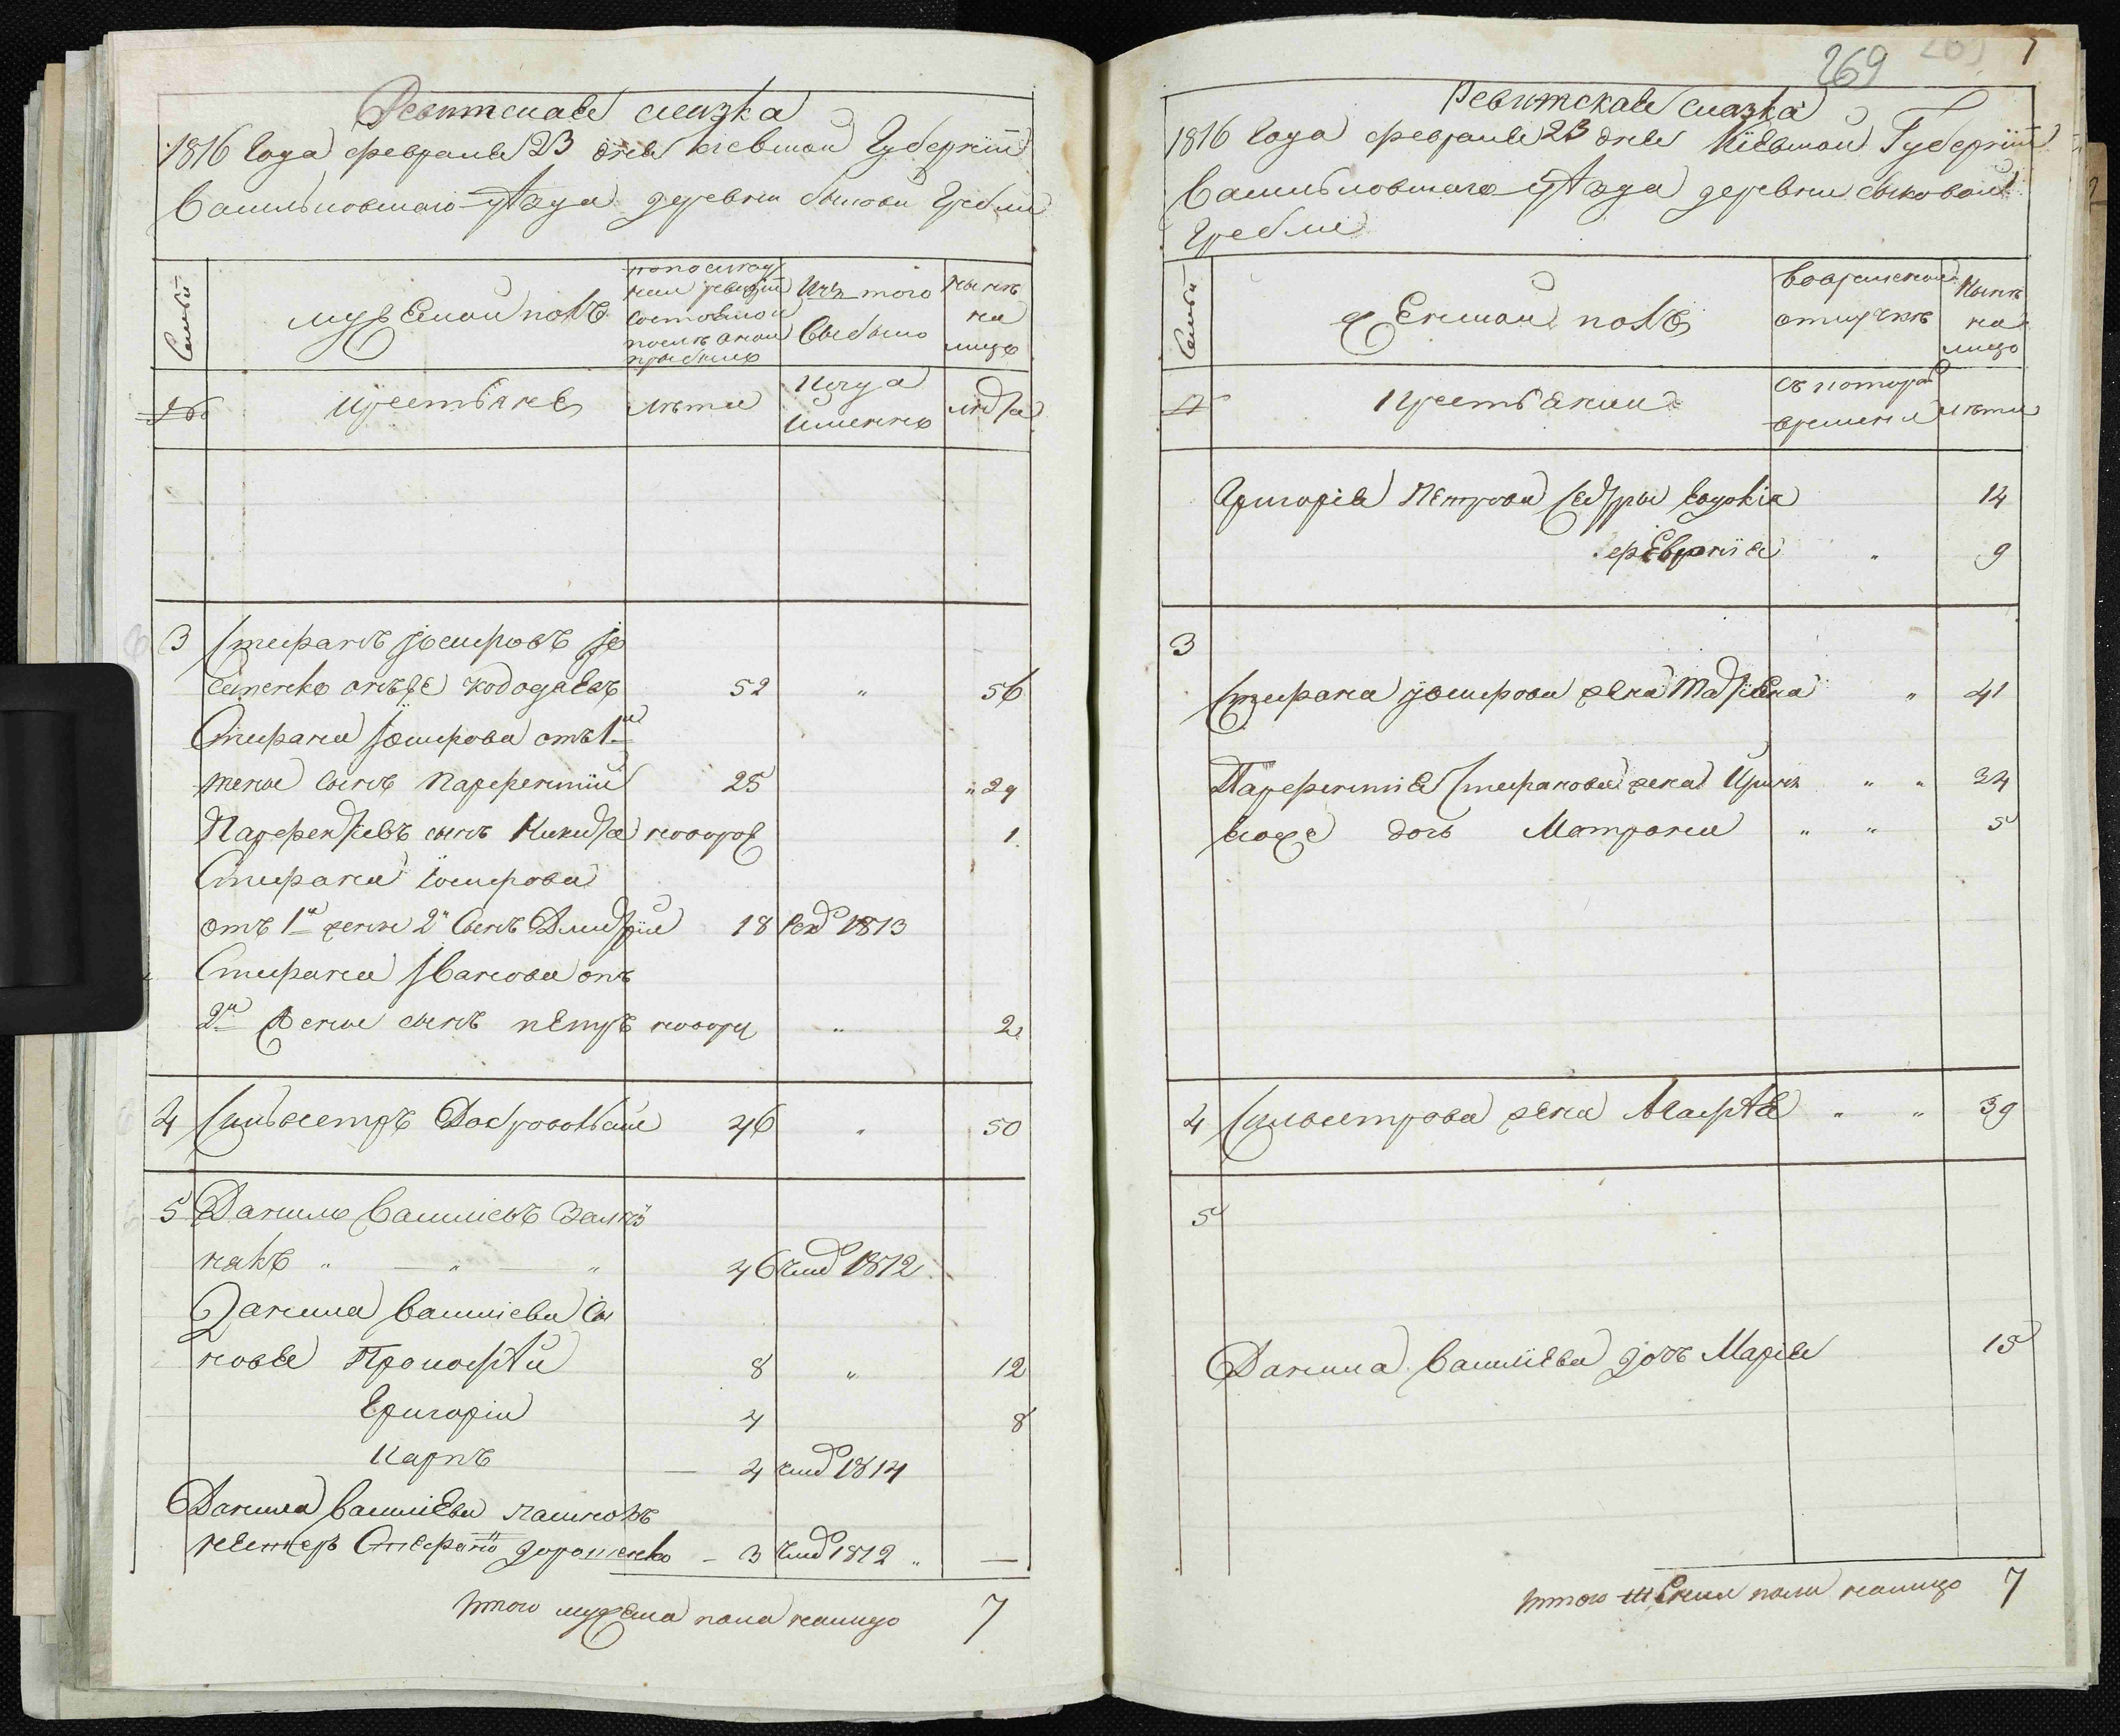 Ревитская сказка
1816 года февраля 23 дня киевской Губернїи
Васильковского уѣзда деревни быковой Гребли
Семьи
мужеской полъ
по последней ревизїи состояло и после оной прибыло
Изъ того выбыло
Ныне на лицо
№
крестьяне
лета
Когда именно
лѣта
3 Стефанъ Іосифовъ
онъ же 52 " 56
Стефана Іосифова отъ 1й
жены сынъ Парфентий 25 " 29
Парфентїевъ сынъ Никита новорож 1
Стефана Іосифова
отъ 1й жены 2й сынъ Дмитрїй 18 1813
Стефана Іванова отъ
2й жены сынъ петръ новорож " 2
4 Силвестръ 46 " 50
5 Данило Василїевъ
накъ " " " 46 умер 1812
Данила Василїева сы
новья Прокофѣй 8 " 12
Григорїй 4 8
Карпъ 4 умер 1814
Данила Василїева пасинокъ
3 умер 1812 " —
Итого мужеска пола налицо 7
269
Ревитская сказка
1816 года февраля 23 дня Кїевской Губернїи
Васильковского уѣзда деревни быковой
Гребли
Семьи
Женской полъ
во временной отлучке
Ныне на лицо
№
Крестьянки
съ которого времени
лета
Григорїя Петрова сестры Евдокїя 14
Евфросинїя " 9
3
Стефана Іосифова жена Татїяна " 41
Парфентїя Стефанова жена Ирина " " 34
его же дочь Матрона " " 5
4 Силвестрова жена Агафѣя " " 39
5
Данила Василїева дочь Марїя 15
Итого женска пола налицо 7